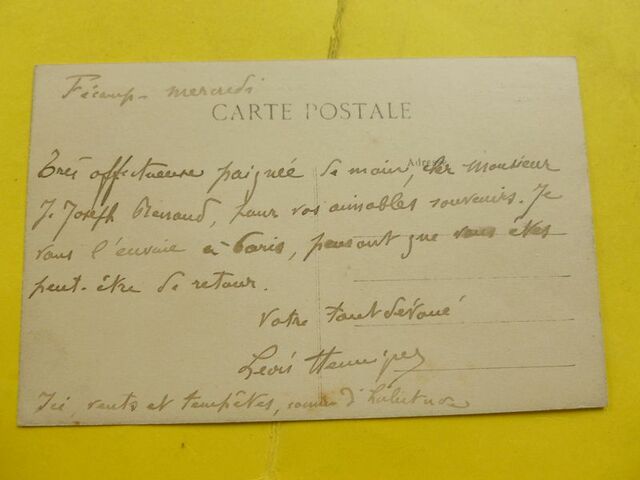 Fécamp - mercredi
CARTE POSTALE
Adresse
Très affectueuse poignée de main, cher Monsieur
J. Joseph Renaud, pour vos aimables souvenirs. Je
vous l'envoie à Paris, pensant que vous êtes
peut-être de retour.
Votre tout dévoué
Léon Hennique
Ici, vents et tempêtes, comme d'habitude